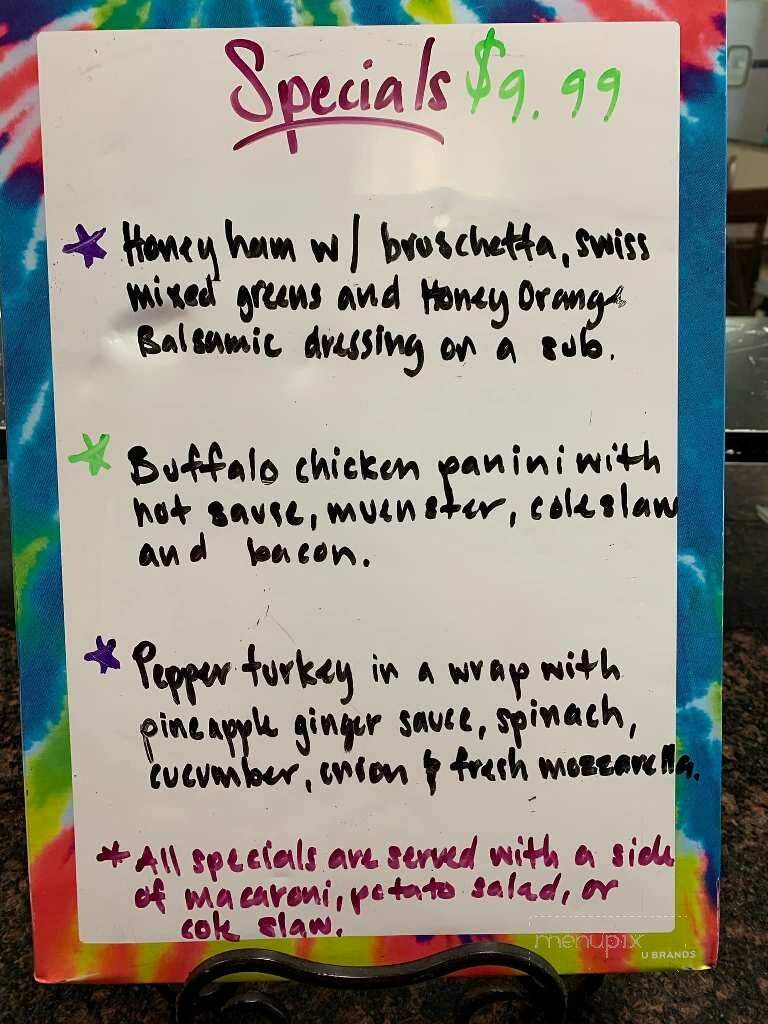 Specials $9.99
Honey ham w/ bruschetta, swiss
mixed greens and Honey Orange
Balsamic dressing on a sub.
Buffalo chicken panini with
hot sause, muenster, coleslaw
and bacon.
Pepper turkey in a wrap with
pineapple ginger sauce, spinach,
cucumber, onion & fresh mozzarella.
* All specials are served with a side
of macaroni, potato salad, or
cole slaw.
menupix
U BRANDS